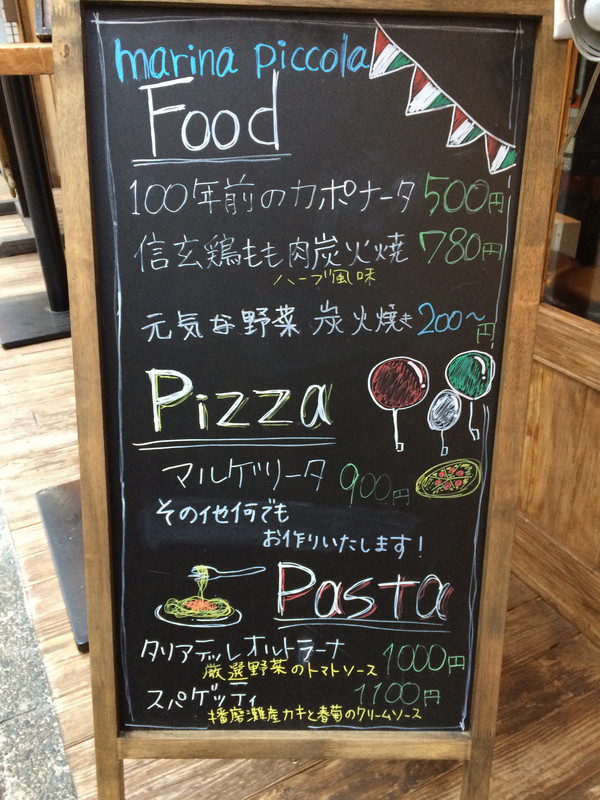 marina piccola
Food
100年前のカポナータ 500円
信玄鶏もも肉炭火焼 780円
ハーブ風味
元気な野菜 炭火焼き 200〜円
Pizza
マルゲリータ 900円
その他何でも
お作りいたします!
Pasta
タリアテッレ オルトラーナ 1000円
厳選野菜のトマトソース
スパゲッティ 1100円
播磨灘産カキと春菊のクリームソース